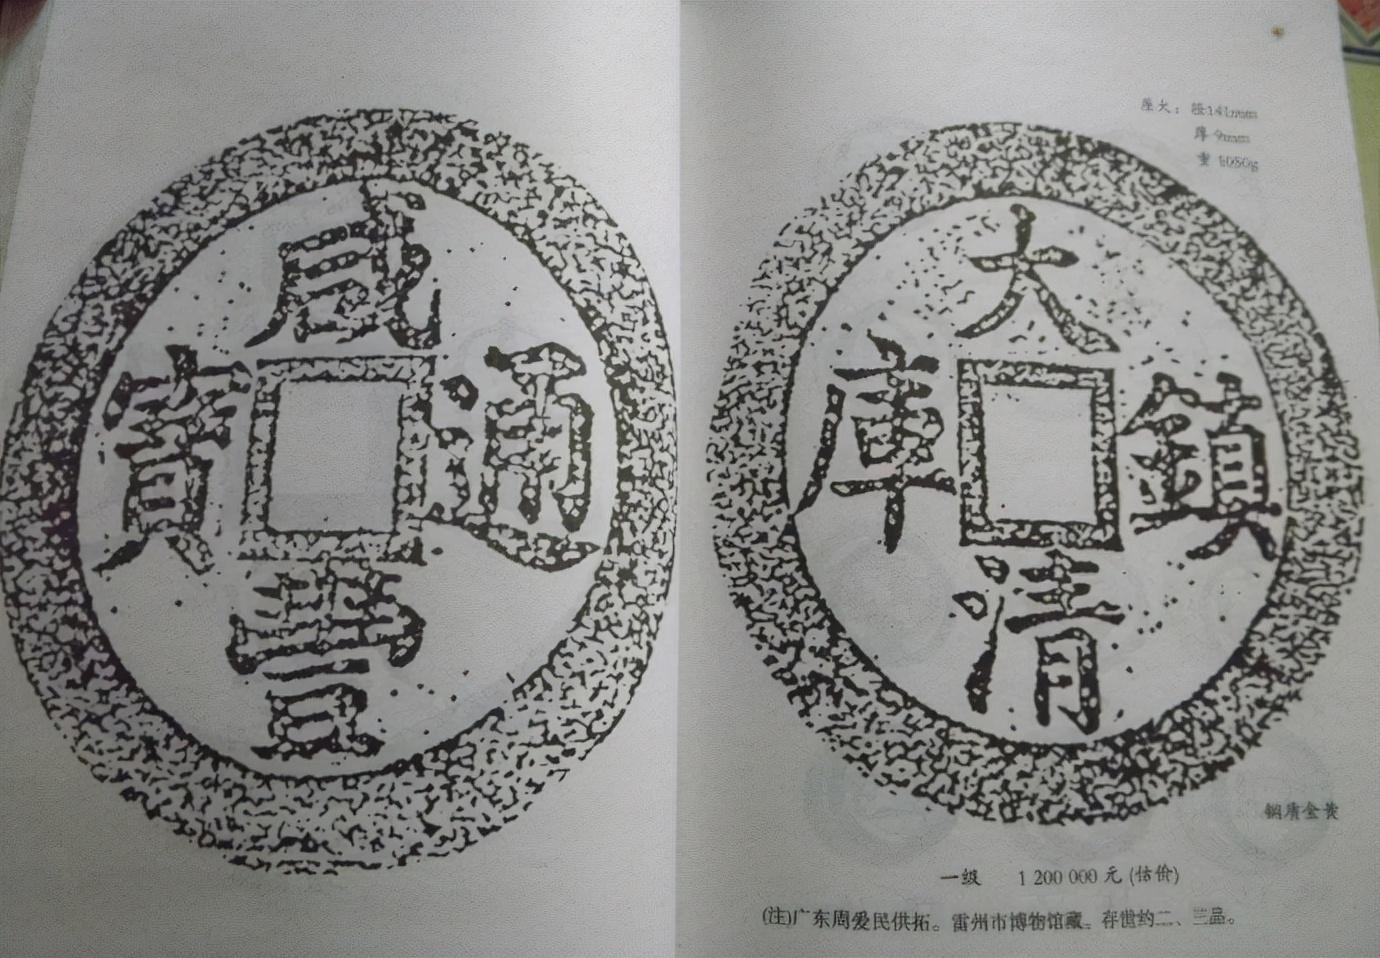 咸
寶 通
豐
座大：径141mm
厚9mm
重1080g
大
庫 鎮
清
铜质金黄
一级 1 200 000 元 (估价)
(注)广东周爱民供拓。雷州市博物馆藏。存世约二、三品。